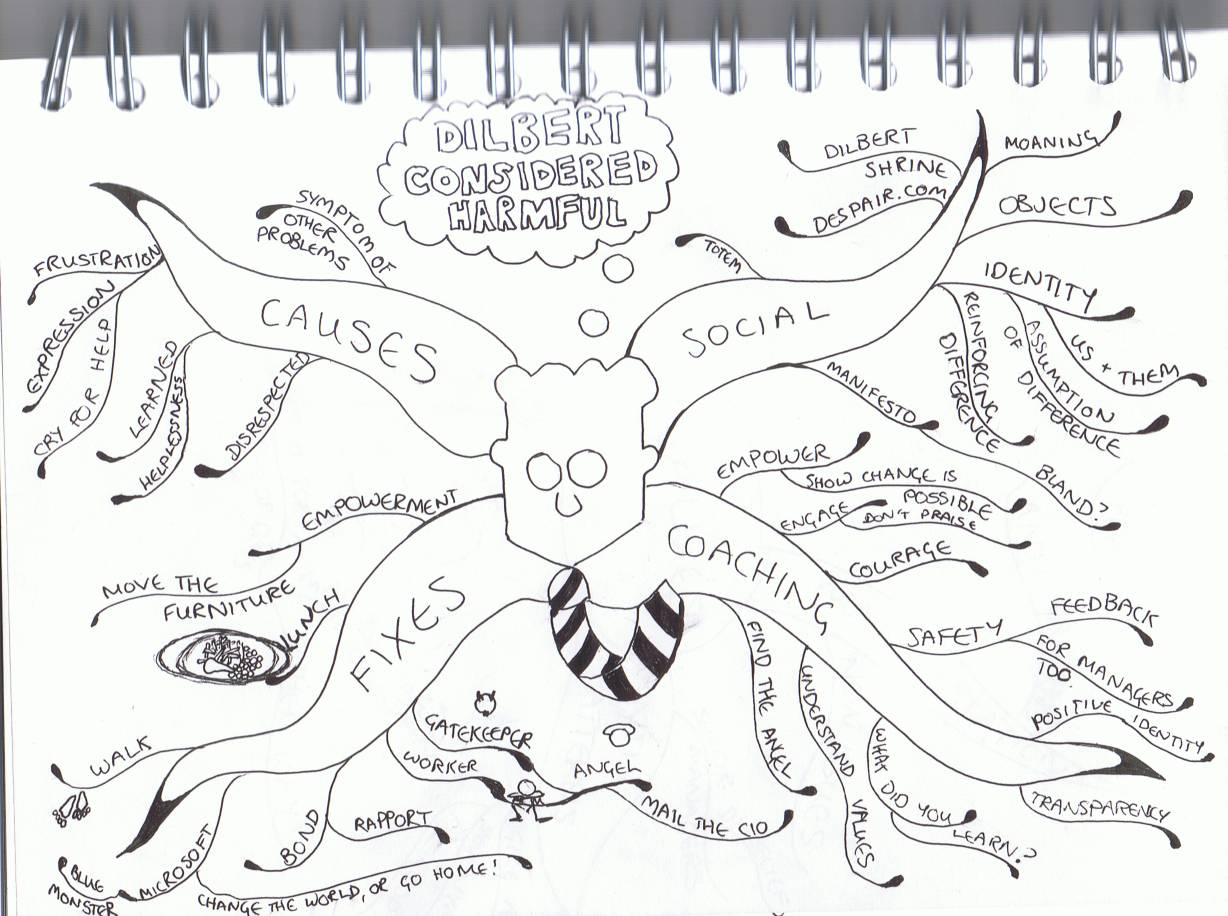 DILBERT
CONSIDERED
HARMFUL
CAUSES
SYMPTOM OF
OTHER
PROBLEMS
FRUSTRATION
EXPRESSION
CRY FOR HELP
LEARNED
HELPLESSNESS
DISRESPECTED
SOCIAL
TOTEM
DILBERT
SHRINE
DESPAIR.COM
MOANING
OBJECTS
IDENTITY
US + THEM
ASSUMPTION
OF DIFFERENCE
REINFORCING
DIFFERENCE
MANIFESTO
BLAND?
COACHING
EMPOWER
SHOW CHANGE IS
POSSIBLE
ENGAGE
DON'T PRAISE
COURAGE
SAFETY
FEEDBACK
FOR MANAGERS
TOO
POSITIVE IDENTITY
TRANSPARENCY
WHAT DID YOU
LEARN?
UNDERSTAND VALUES
FIND THE ANGEL
FIXES
EMPOWERMENT
MOVE THE
FURNITURE
LUNCH
WALK
MICROSOFT
BLUE
MONSTER
CHANGE THE WORLD, OR GO HOME!
BOND
RAPPORT
GATEKEEPER
WORKER
ANGEL
MAIL THE CIO